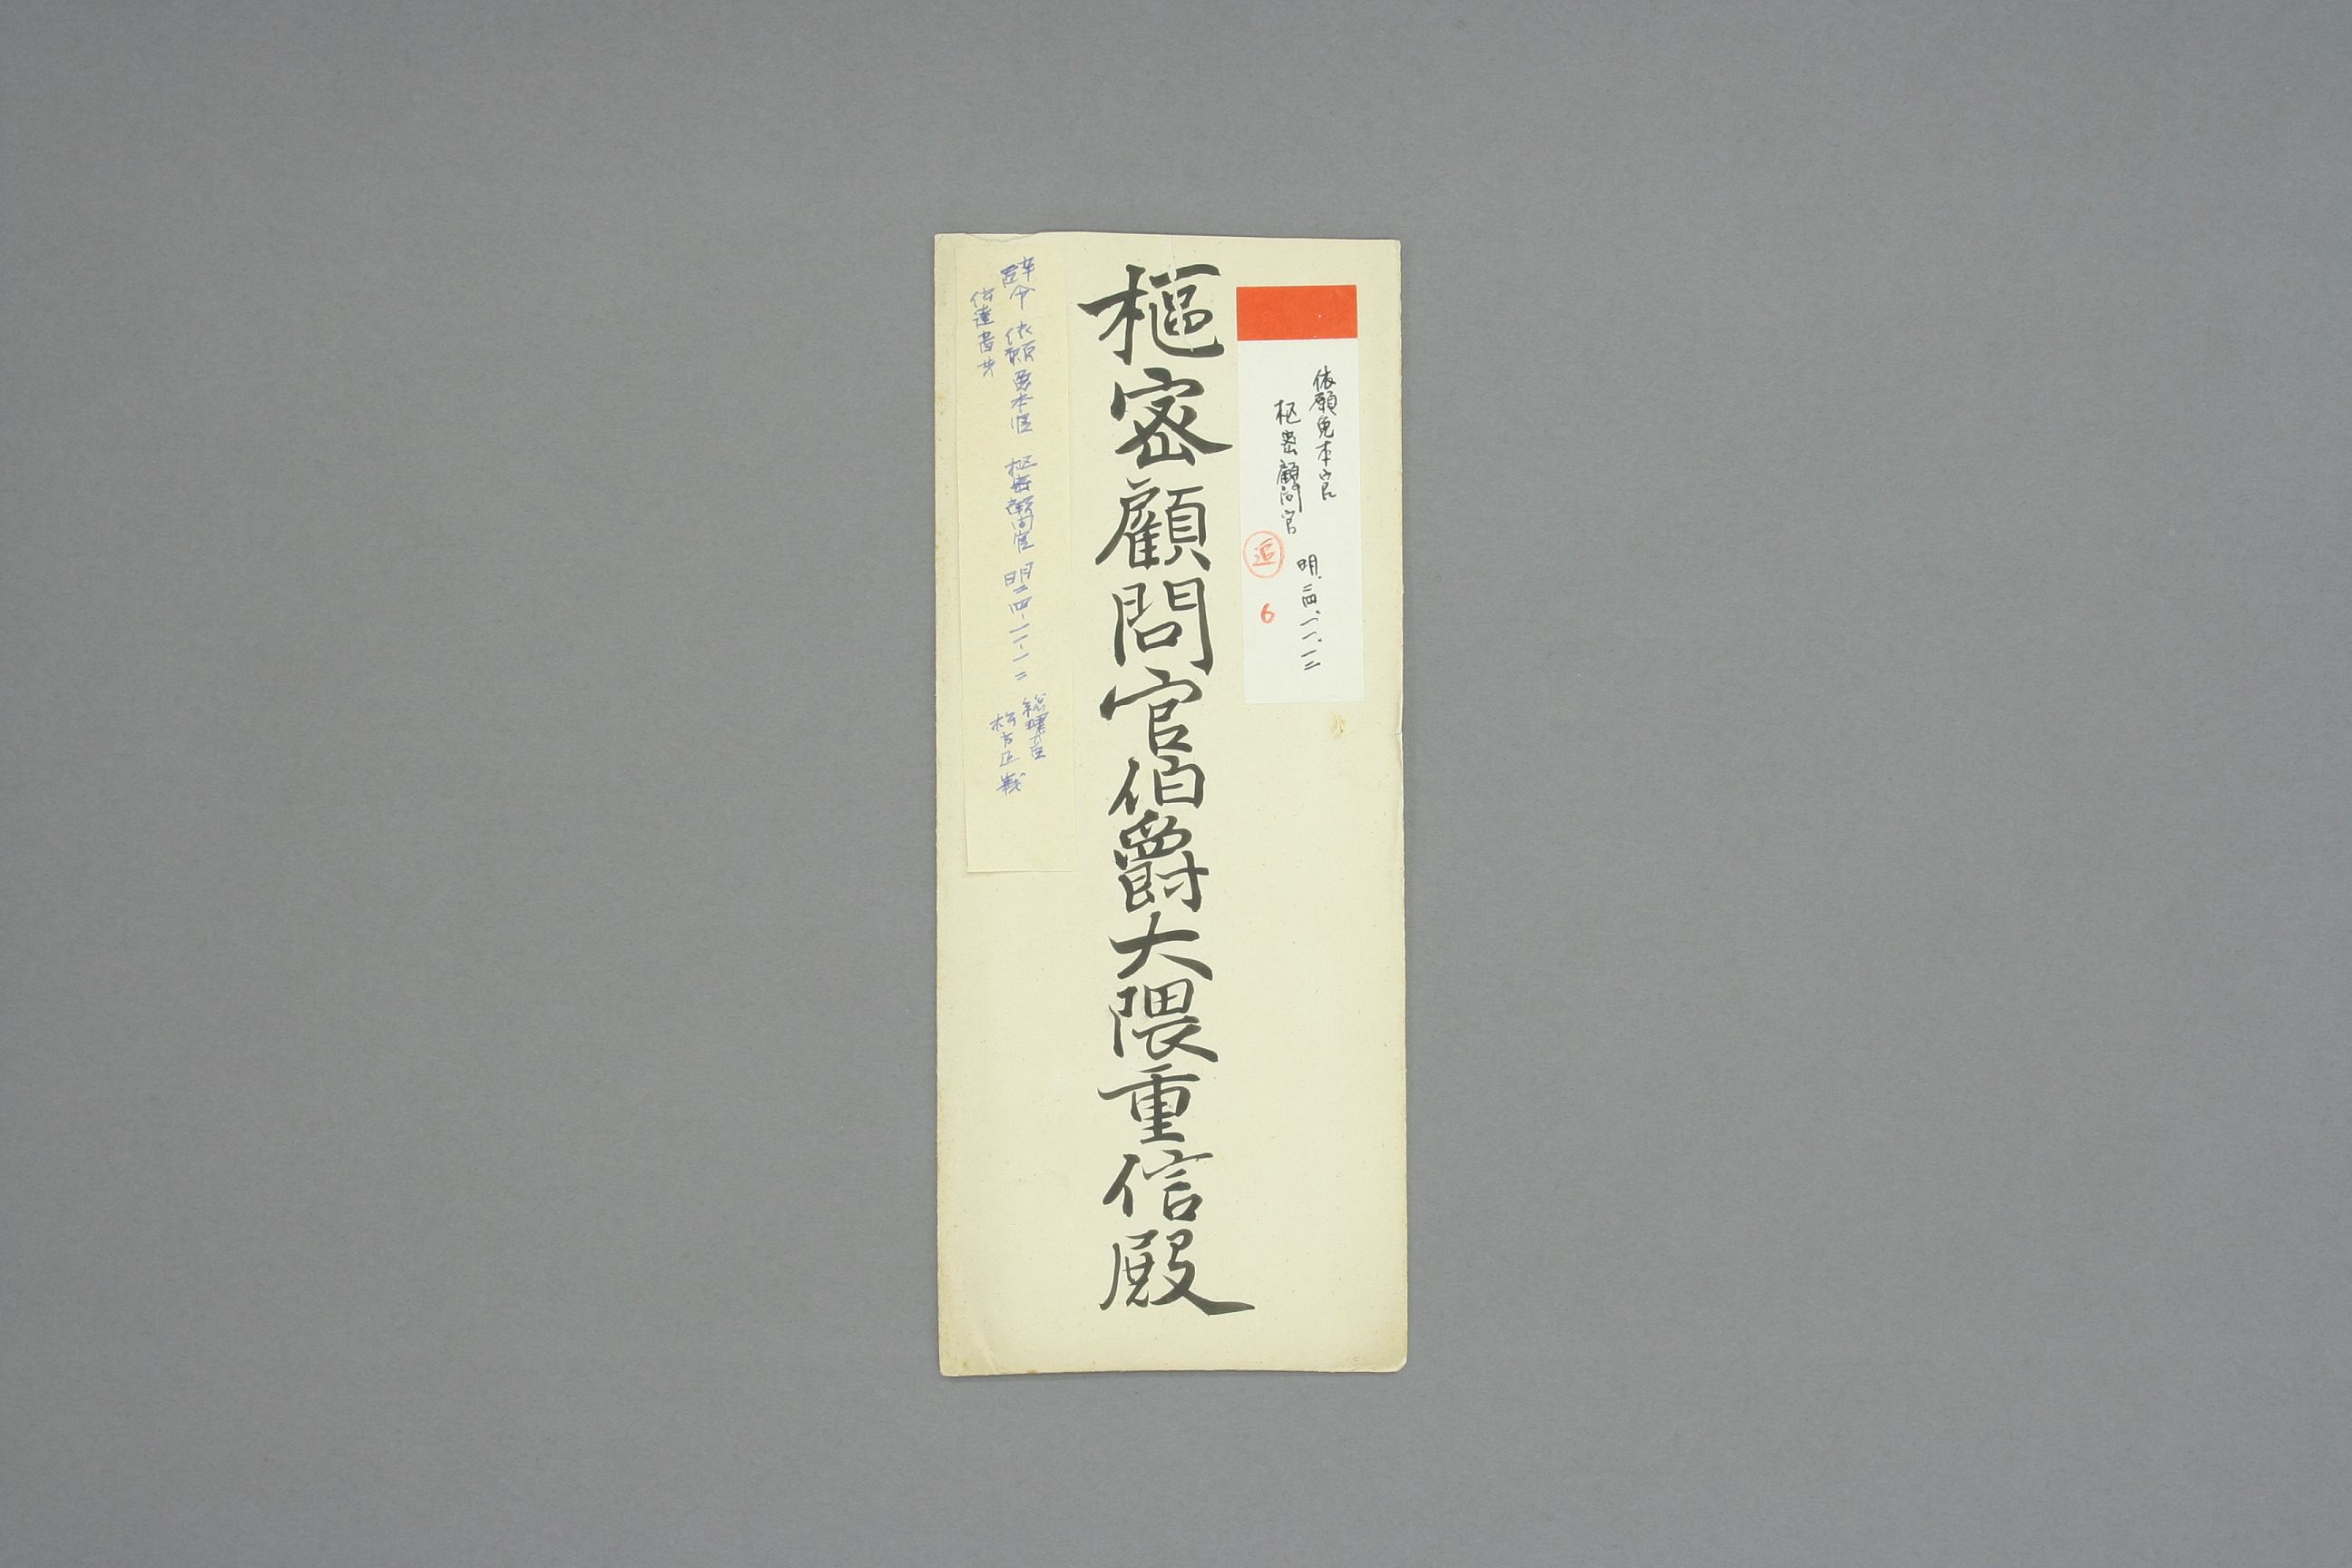 依願免本官
枢密顧問官
明、二四、一一、一二
追
6
樞密顧問官伯爵大隈重信殿
辞令 依頼免本官 枢密顧問官 明二四-一一-一二
総理大臣
松方正義
伝達書共